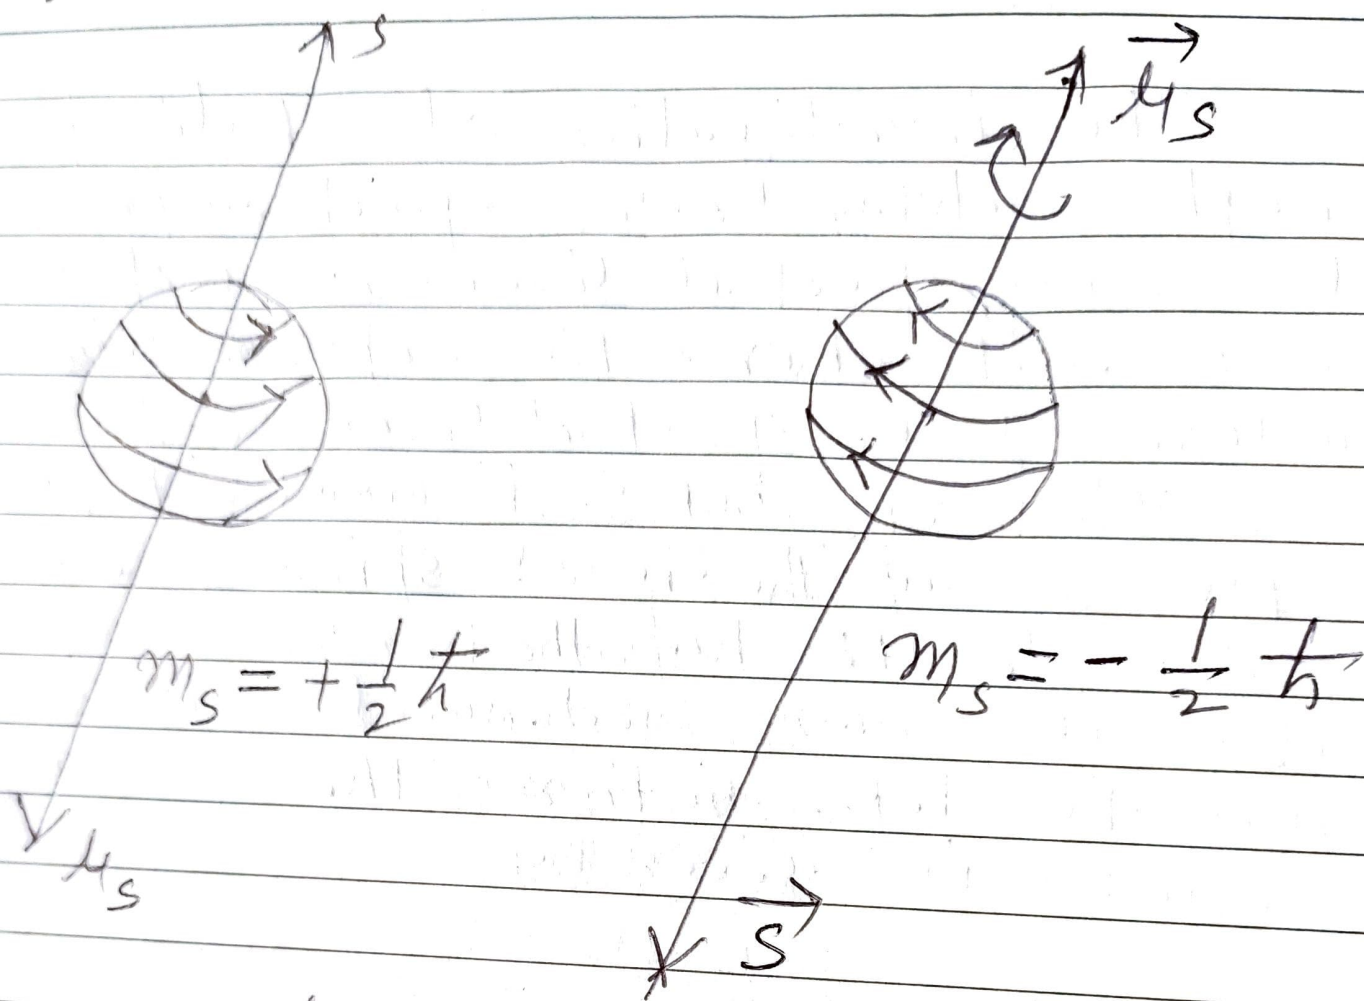 S
μ⃗s
mₛ = + 1/2 ħ
mₛ = - 1/2 ħ
μₛ
S⃗